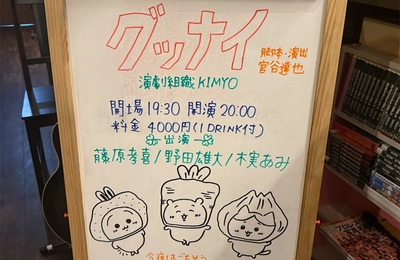 グッナイ
脚本・演出
宮谷達也
演劇組織KIMYO
開場19:30 開演20:00
料金 4000円(1DRINK付)
出演
藤原孝喜/野田雄大/木実あみ
今夜はごちそう